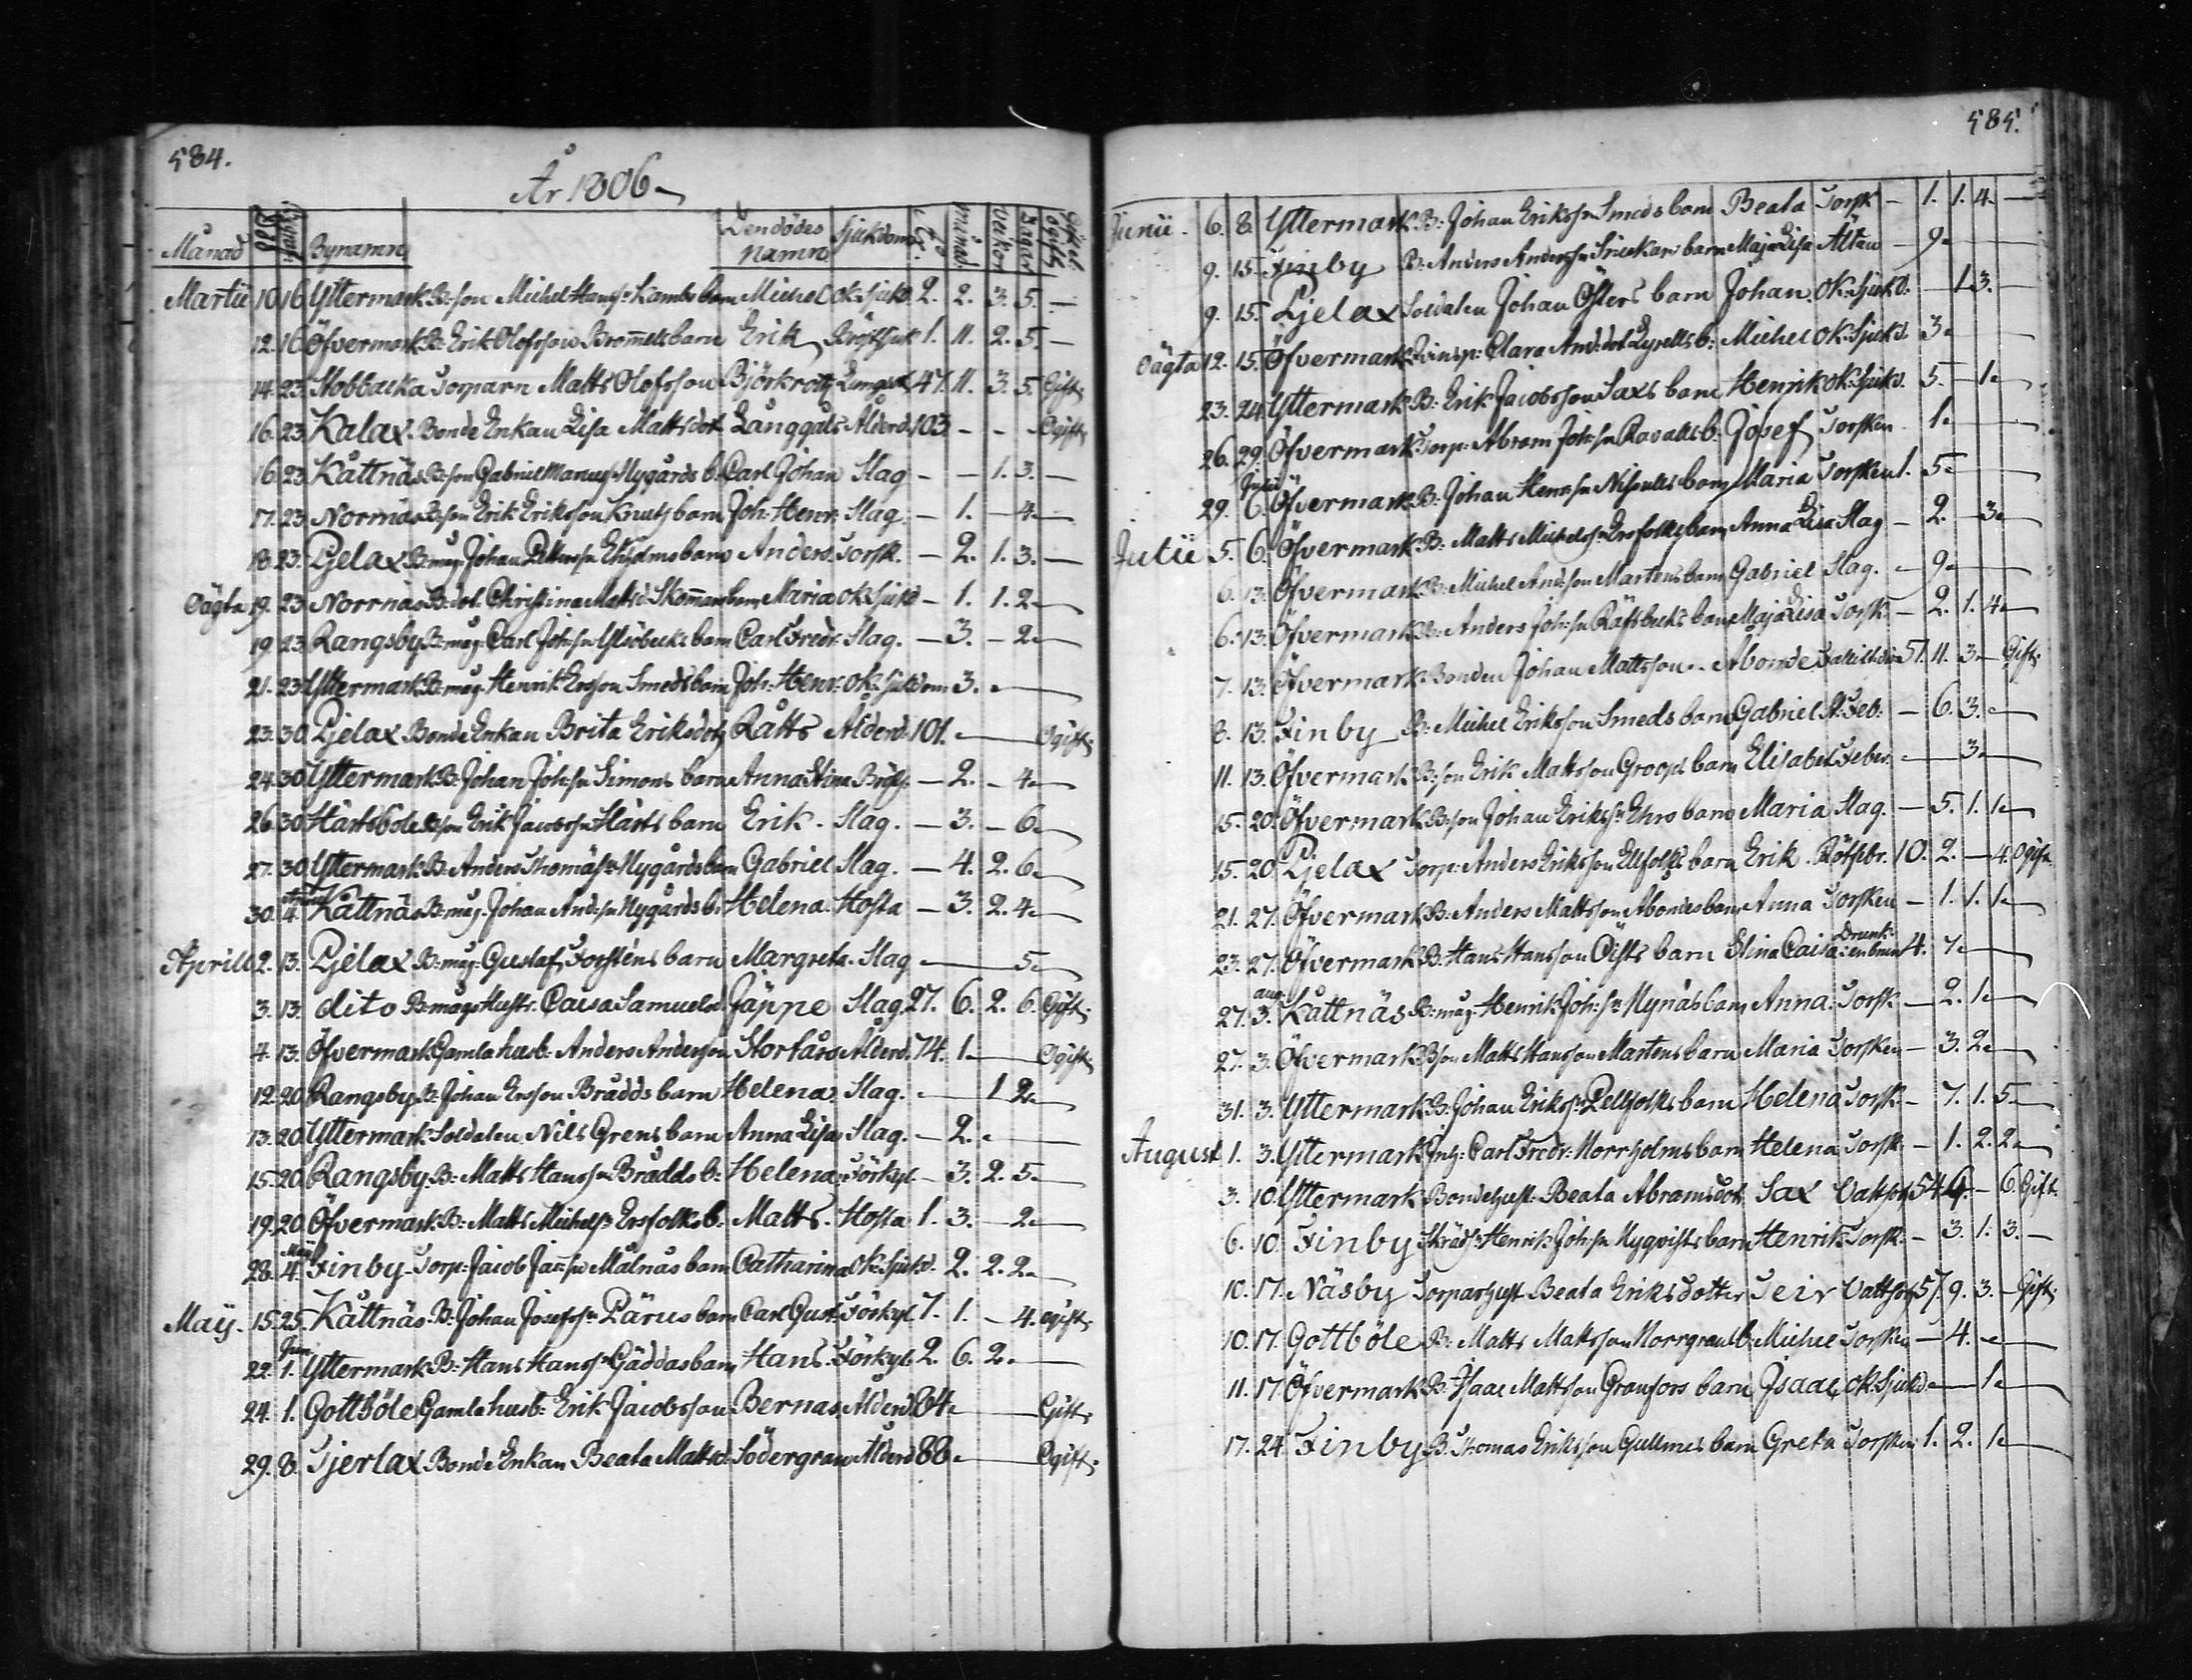 584.
År 1806
Månad Död Begrafd Bynamn Den dödes Namn Sjukdom År Månad. Veckor Dagar Gift el. Ogift
Martii 10. 16 Yttermark B:son Michel Hanss: Kambs barn Michel ok: sjukd. 2. 2. 3. 5. —
12. 16 Öfvermark B: Erik Olofsson Brommels barn Erik Bröstsjuk 1. 11. 2. 5. —
14. 23. Stobbacka Torparn Matts Olofsson Björkrott Lungsot 47. 11. 3. 5. Gift
16. 23. Kalax. Bonde Enkan Lisa Mattsdot. Långgåls Ålderd. 103 - - - Ogift
16. 23. Kåttnäs B:son Gabriel Marcuss: Nygårds b. Carl Johan Slag - - 1. 3. —
17. 23. Norrnäs B:son Erik Eriksson Knuts barn Joh: Henr. Slag. — 1. — 4 —
18. 23. Pjelax B: måg. Johan Petterss: Ekholms barn Anders. Torsk. — 2. 1. 3. —
Oägta 19. 23. Norrnäs B: dot. Christina Mattsd: Skomars barn Maria ok: sjukd — 1. 1. 2 —
19. 23. Rangsby B: måg. Carl Joh:sn Ylisbecks barn Carl Fredr. Slag. — 3. - 2 —
21. 23 Yttermark B: måg. Henrik Ersson Smeds barn Joh: Henr: ok: sjukdom 3. —
23. 30. Pjelax Bonde Enkan Brita Eriksdot. Råtts Ålderd. 101. — Ogift
24. 30 Yttermark B: Johan Joh:sn Simons barn Anna Stina Bröstsj. — 2. - 4 —
26. 30 Härtsböle B:son Erik Jacobss: Härts barn Erik. Slag. — 3. - 6 —
27. 30. Yttermark B: Anders Thomass: Nygårds barn Gabriel Slag. — 4. 2. 6 —
30. April 4. Kåttnäs B: måg. Johan And:sn Nygårds b. Helena. Hosta — 3. 2. 4 —
Aprill 2. 13. Pjelax B: måg: Gustaf Forsténs barn Margreta. Slag — 5 —
3. 13. dito B: mågs Hustr. Caisa Samuelsd. Jäppe Slag. 27. 6. 2. 6. Gift.
4. 13. Öfvermark Gamla husb: Anders Andersson Storfårs Ålderd. 74. 1. — Ogift
12. 20. Rangsby B: Johan Ersson Brådds barn Helena Slag. — 1 2 —
13. 20 Yttermark Soldaten Nils Grens barn Anna Lisa Slag. — 2. —
15. 20 Rangsby B: Matts Hanss: Brådds b: Helena Förkyl. - 3. 2. 5 —
19. 20 Öfvermark B: Matts Michelss: Ersfolks b. Matts. Hosta 1. 3. — 2 —
28. Maij 4. Finby Torp: Jacob Jac:sn Målnäs barn Catharina ok: sjukd. 2. 2. 2 —
Maij. 15. 25. Kåttnäs. B: Johan Josefss: Pärus barn Carl Gust. Förkyl. 7. 1. - 4. ogift
22. Jun. 1. Yttermark B: Hans Hanss: Gäddas barn Hans. Förkyl. 2. 6. 2. —
24. 1. Gottböle Gamla husb: Erik Jacobsson Bernas Ålderd. 84. — Gift
29. 8. Tjerlax Bonde Enkan Beata Mattsd. Södergran Ålderd. 88. — Ogift
585.
Junii. 6. 8. Yttermark B: Johan Erikss: Smeds barn Beata Torsk — 1. 1. 4. —
9. 15. Finby B: Anders Anderss: barn Maja Lisa Ältan — 9 —
9. 15. Pjelax Soldaten Johan Östers barn Johan. ok: sjukd. — 1 3. —
Oägta 12. 15. Öfvermark Clara And:dot. b: Michel ok: sjukd. 3 —
23. 24 Yttermark B: Erik Jacobsson Saxs barn Henrik ok: sjukd. 5. — 1 —
26. 29 Öfvermark Torp: Abram Joh:sn Ravalls b: Josef Torsken 1 —
29. Julii 6. Öfvermark B: Johan Henr:sn Nissulls barn Maria Torsken 1. 5 —
Julii 5. 6. Öfvermark B: Matts Michelss: Ersfolks barn Anna Lisa Slag — 2. — 3 —
6. 13. Öfvermark B: Michel Andsson Martens barn Gabriel Slag. — 9 —
6. 13. Öfvermark B: Anders Joh:sn Räfsbecks barn Maja Lisa Torsk. — 2. 1. 4 —
7. 13. Öfvermark Bonden Johan Mattsson. Åbonde 51. 11. 3 — Gift.
8. 13. Finby B: Michel Eriksson Smeds barn Gabriel Feb: — 6. 3. —
11. 13. Öfvermark B:son Erik Mattsson Groops barn Elisabet Feber. — 3 —
15. 20. Öfvermark B:son Johan Erikss: Ehrs barn Maria Slag. — 5. 1. 1 —
15. 20 Pjelax Torp: Anders Eriksson Ellfolks barn Erik. Rötfebr. 10. 2. — 4. Ogift.
21. 27. Öfvermark B: Anders Mattsson Åbondes barn Anna Torsken — 1. 1. 1 —
23. 27. Öfvermark B: Hans Hansson Qvists barn Stina Caisa Drunk: i en brun 4. 7 —
27. aug. 3. Kåttnäs B: måg. Henrik Joh:sn Nynäs barn Anna. Torsk — 2. 1 —
27. 3. Öfvermark B:son Matts Hansson Martens barn Maria Torsken — 3. 2 —
31. 3. Yttermark B: Johan Erikss: Pellfolks barn Helena Torsk. — 7. 1. 5 —
August 1. 3. Yttermark Inh: Carl Fredr: Norrholms barn Helena Torsk — 1. 2. 2 —
3. 10. Yttermark Bondehust: Beata Abramsdot. Sax Vattsot 54. 9. — 6. Gift.
6. 10. Finby Skräd: Henrik Joh:sn Nyqvists barn Henrik Torsk — 3. 1. 3. —
10. 17. Näsby Torparhust Beata Eriksdotter Teir Vattsot 57. 9. 3. — Gift.
10. 17. Gottböle B: Matts Mattsson Norrgrans b. Michel Torsken — 4. —
11. 17. Öfvermark B: Isaac Mattsson Granfors barn Isaac ok: sjukd — 1 —
17. 24. Finby B: Thomas Eriksson Gullmes barn Greta Torsken 1. 2. 1 —